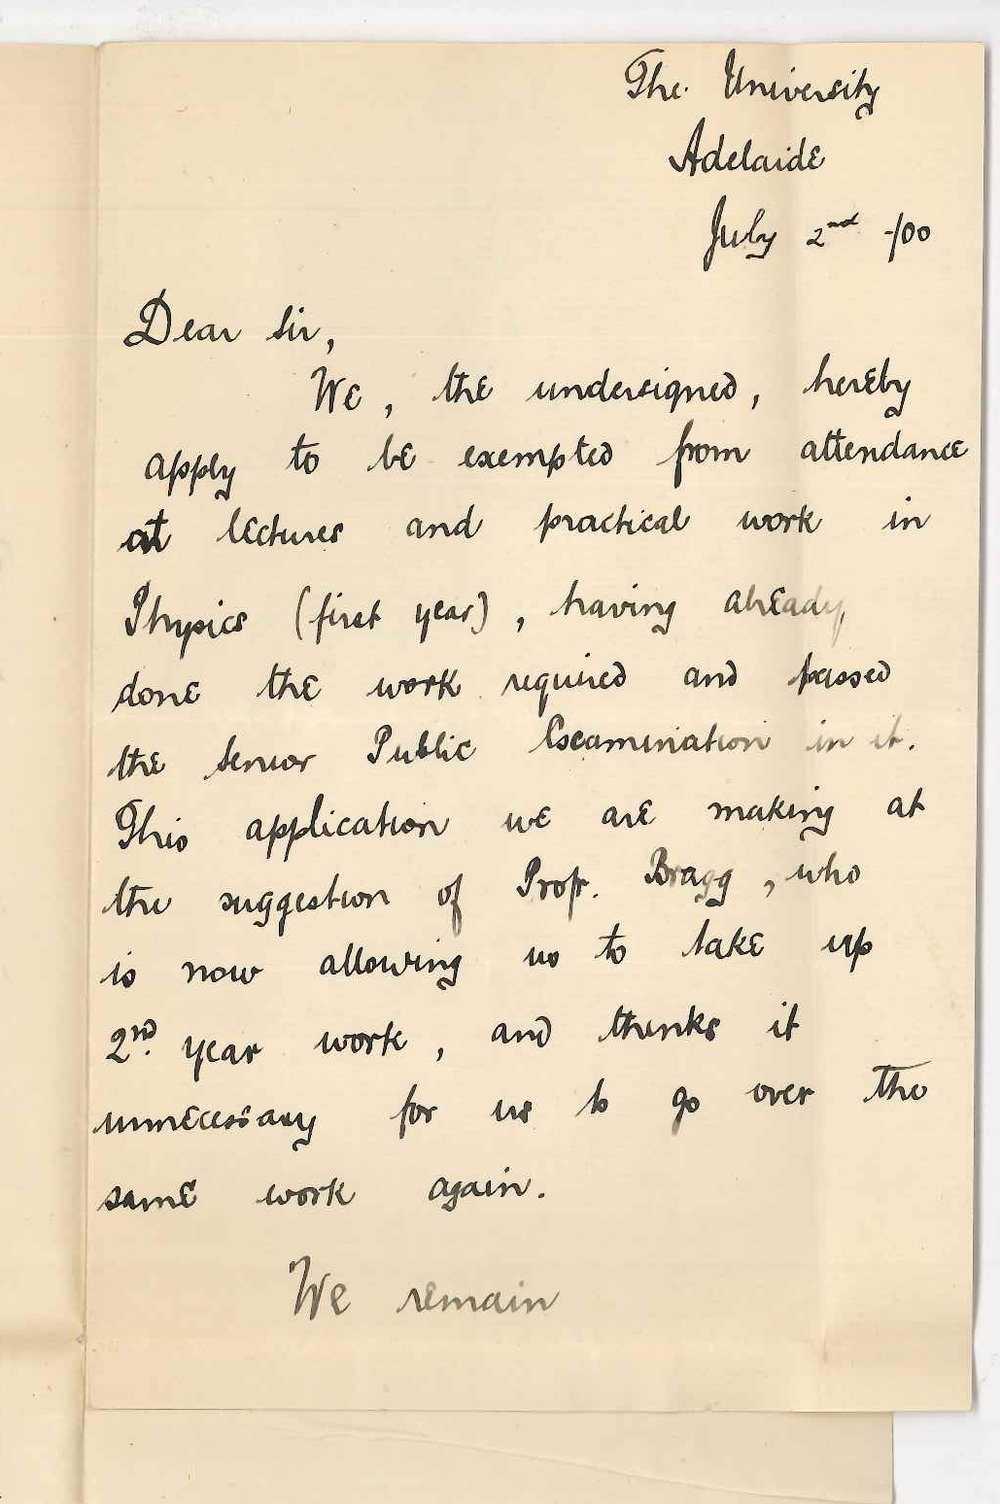 The University
Adelaide
July 2nd -/00
Dear Sir,
We, the undersigned, hereby
apply to be exempted from attendance
at lectures and practical work in
Physics (first year), having already,
done the work required and passed
the Senior Public Examination in it.
This application we are making at
the suggestion of Profr. Bragg, who
is now allowing us to take up
2nd. year work, and thinks it
unnecessary for us to go over the
same work again.
We remain